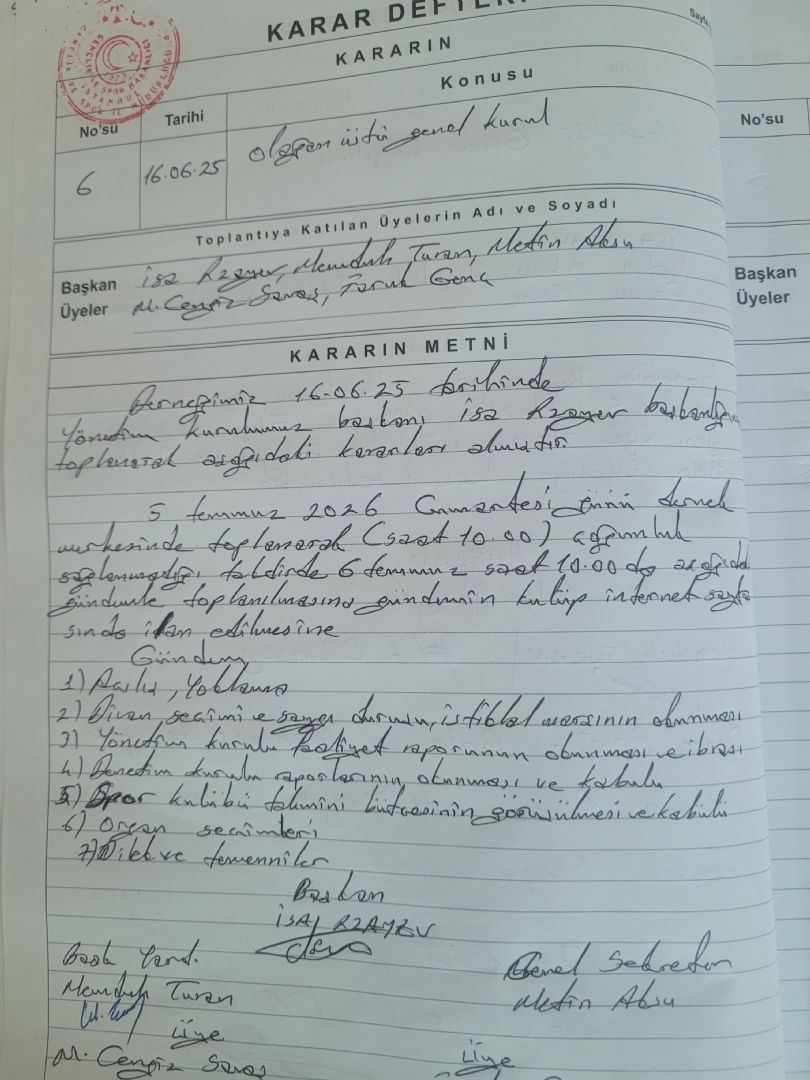 KARAR DEFTER
Sayfa
KARARIN
No'su
Tarihi
Konusu
6
16.06.25
olağan üstü genel kurul
Toplantıya Katılan Üyelerin Adı ve Soyadı
Başkan
Üyeler
isa Rzayev, Memduh Turan, Metin Aksu
M. Cengiz Savaş, Faruk Genç
No'su
Başkan
Üyeler
KARARIN METNİ
Derneğimiz 16.06.25 tarihinde
Yönetim kurulumuz başkanı isa Rzayev başkanlığın
toplanarak aşağıdaki kararları almıştır.
5 temmuz 2026 Cumartesi günü dernek
merkezinde toplanarak (saat 10.00) çoğunluk
sağlanmadığı takdirde 6 temmuz saat 10.00 da aşağıda
gündemle toplanılmasına gündemin kulüp internet sayfa
sında ilan edilmesine
Gündem
1) Açılış, Yoklama
2) Divan seçimi ve saygı duruşu, istiklal marşının okunması
3) Yönetim kurulu faaliyet raporunun okunması ve ibrası
4) Denetim kurulu raporlarının okunması ve kabulu
5) Spor kulübü tahmini bütçesinin görüşülmesi ve kabulü
6) Organ seçimleri
7) Dilek ve temenniler
Başkan
İSA RZAYEV
Başk Yard.
Genel Sekreter
Memduh Turan
Metin Aksu
Üye
Üye
M. Cengiz Savaş